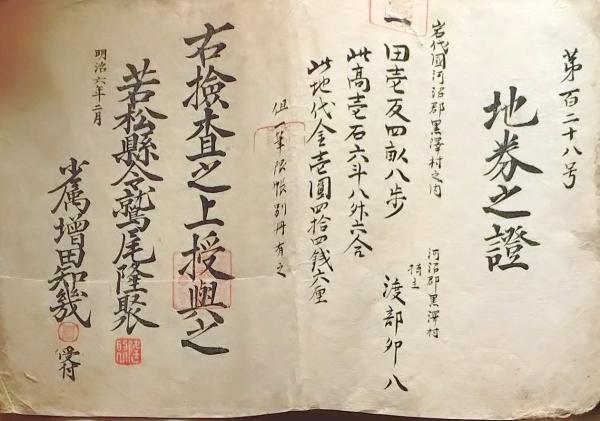 第百二十八号
地券之證
岩代國河沼郡黒澤村之内
一田壱反四畝八歩
河沼郡黒澤村
持主
渡部卯八
此高壱石六斗八升六合
此地代金壱圓四拾四銭六厘
但一筆限帳別冊有之
右撿査之上授與之
明治六年二月
若松縣令鷲尾隆聚
少属増田知幾
受付